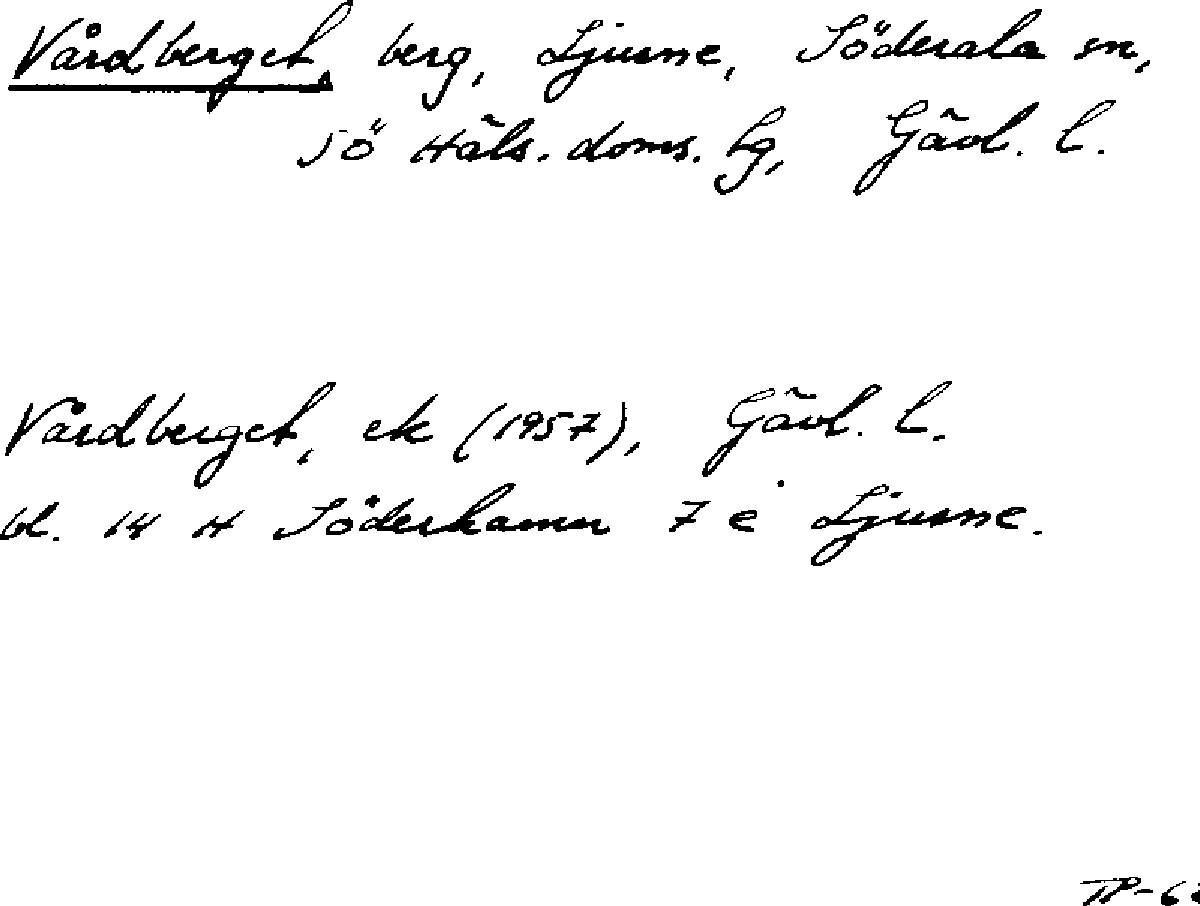 Vårdberget, berg, Ljusne, Söderala sn,
Sö Häls. doms. lg, Gävl. l.
Vårdberget, ek (1957), Gävl. l.
bl. 14 H Söderhamn 7 e Ljusne.
TP-6